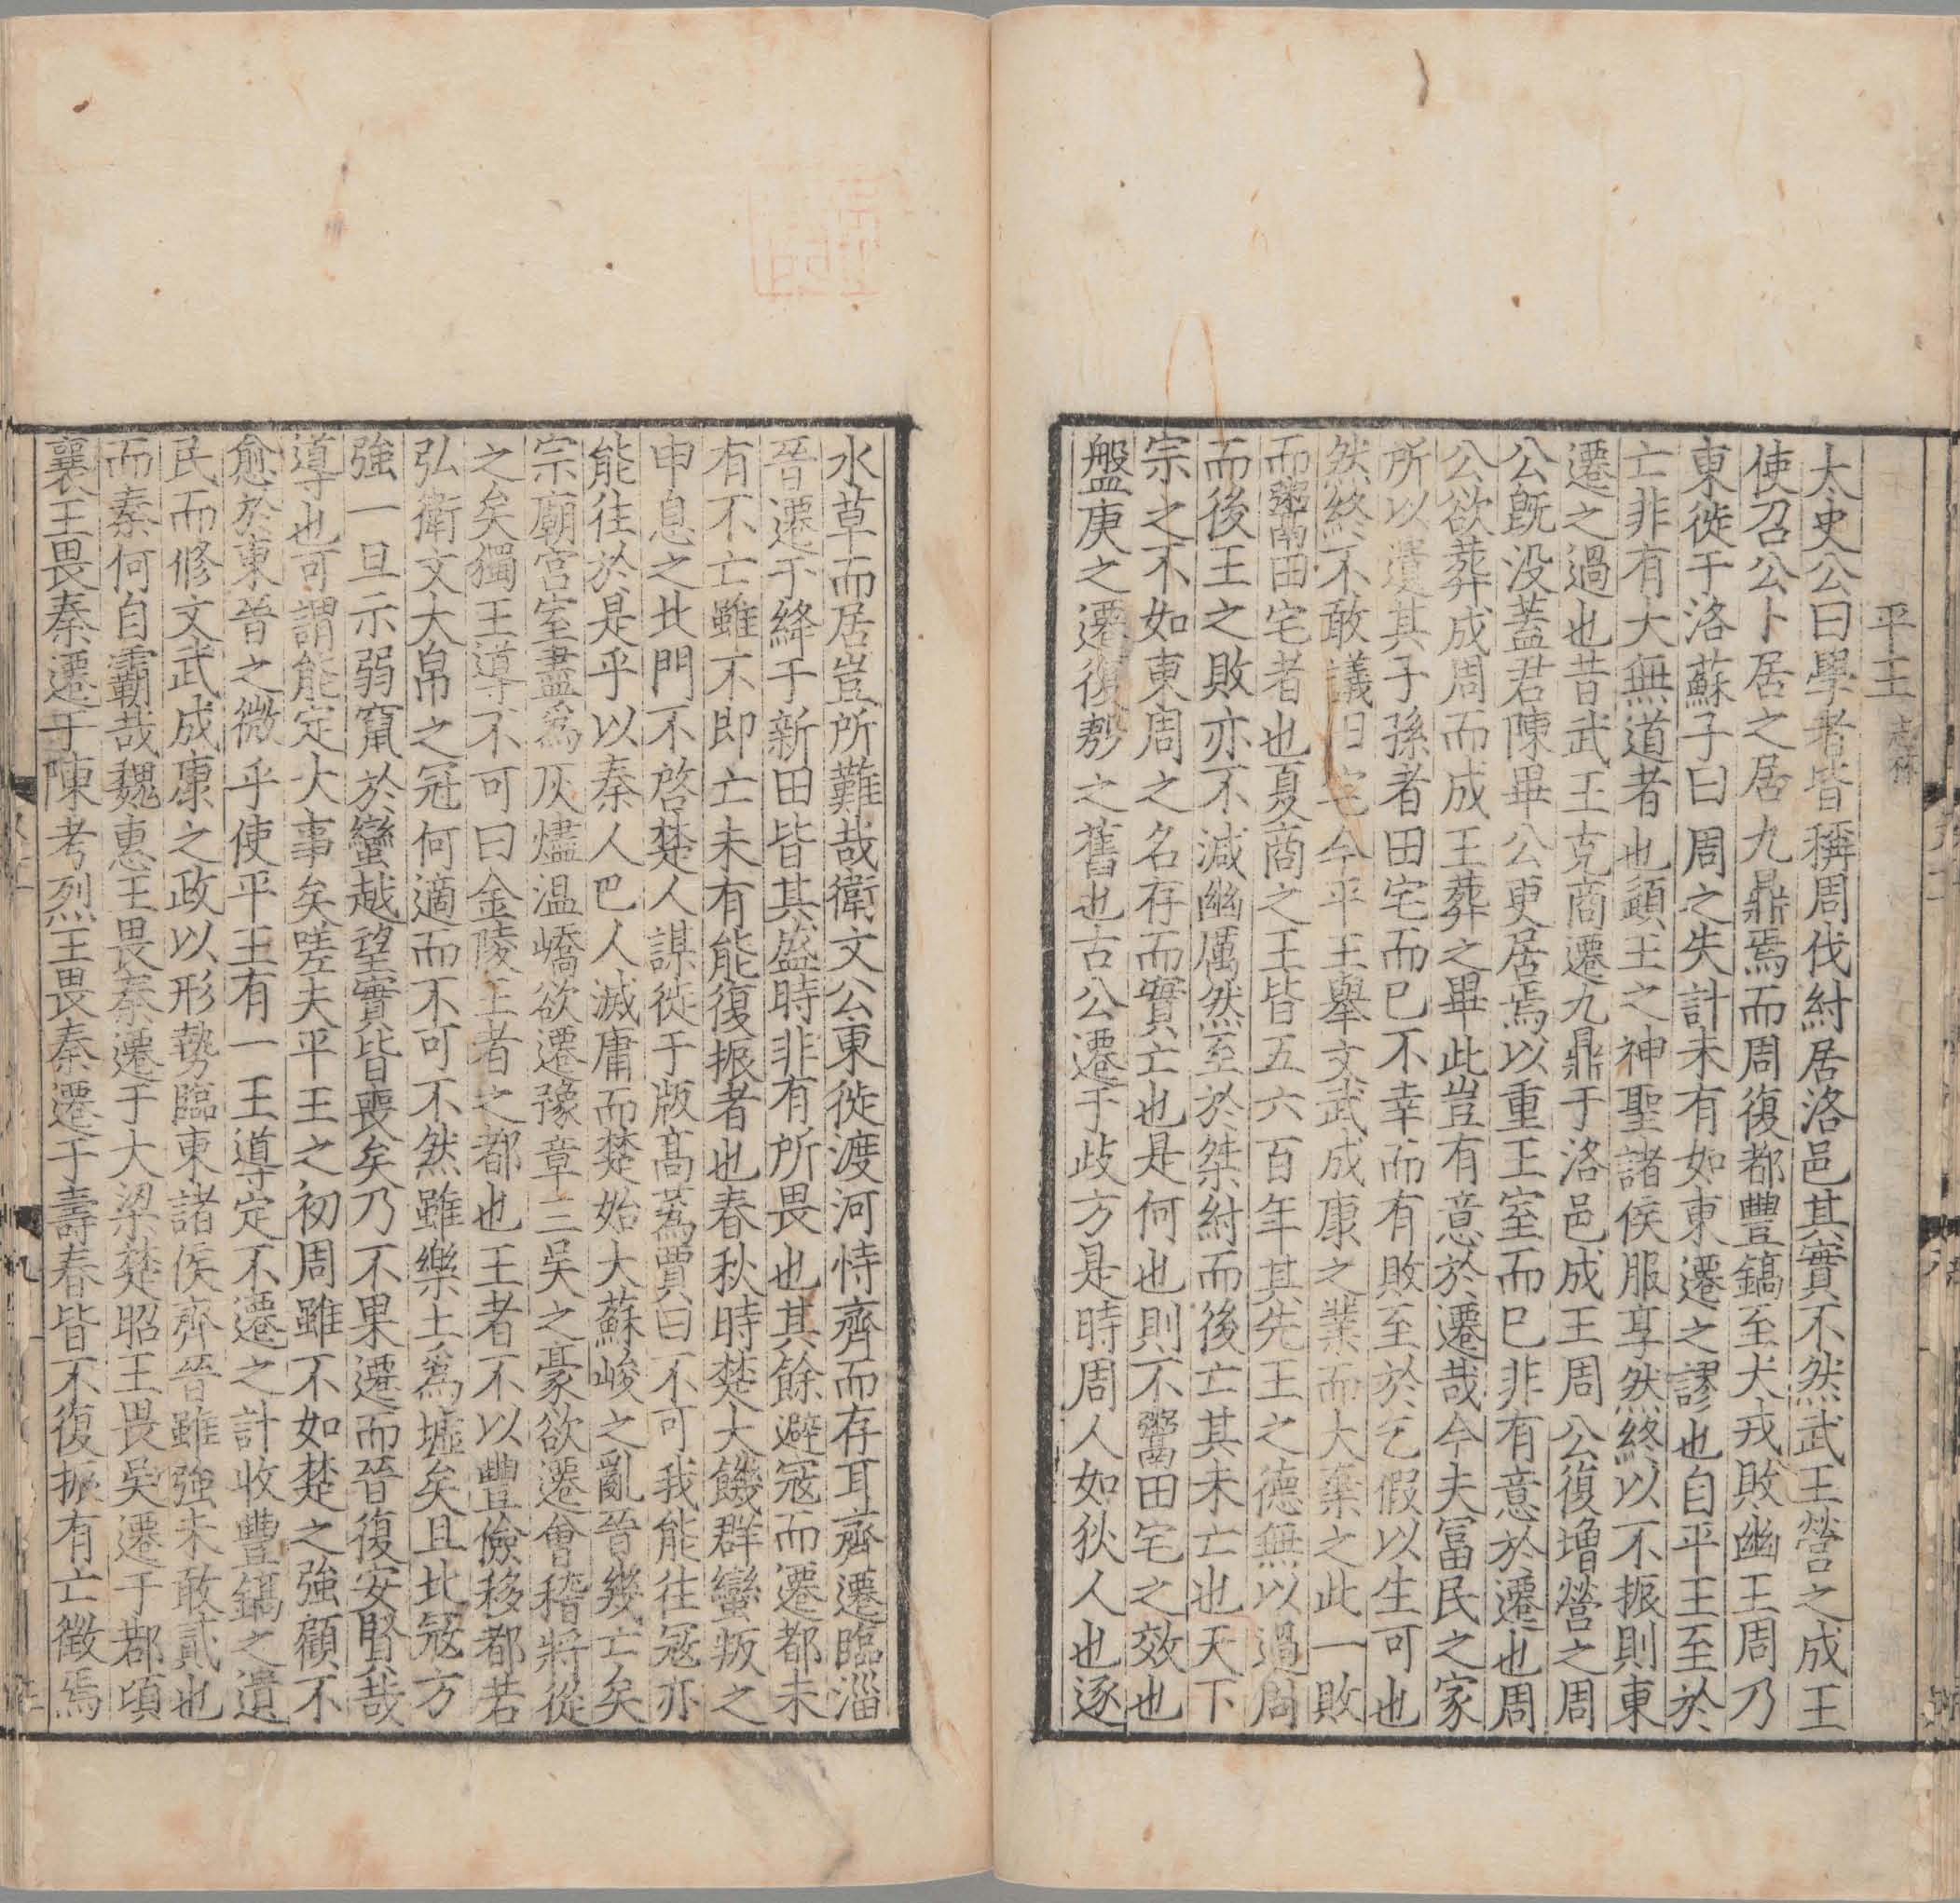 平王 志林
太史公曰學者皆稱周伐紂居洛邑其實不然武王營之成王
使召公卜居之居九鼎焉而周復都豐鎬至犬戎敗幽王周乃
東徙于洛蘇子曰周之失計未有如東遷之謬也自平王至於
亡非有大無道者也頾王之神聖諸侯服享然終以不振則東
遷之過也昔武王克商遷九鼎于洛邑成王周公復增營之周
公旣没蓋君陳畢公更居焉以重王室而已非有意於遷也周
公欲葬成周而成王葬之畢此豈有意於遷哉今夫冨民之家
所以遺其子孫者田宅而已不幸而有敗至於乞假以生可也
然終不敢議田宅今平王舉文武成康之業而大棄之此一敗
而鬻田宅者也夏商之王皆五六百年其先王之德無以過周
而後王之敗亦不減幽厲然至於桀紂而後亡其未亡也天下
宗之不如東周之名存而實亡也是何也則不鬻田宅之效也
盤庚之遷復殷之舊也古公遷于歧方是時周人如狄人也逐
水草而居豈所難哉衛文公東徙渡河恃齊而存耳齊遷臨淄
晉遷于絳于新田皆其盛時非有所畏也其餘避冦而遷都未
有不亡雖不即亡未有能復振者也春秋時楚大饑群蠻叛之
申息之北門不啓楚人謀徙于阪髙蒍賈曰不可我能往冦亦
能往於是乎以秦人巴人滅庸而楚始大蘇峻之亂晉幾亡矣
宗廟宮室盡爲灰燼温嶠欲遷豫章三吳之豪欲遷會稽將從
之矣獨王導不可曰金陵王者之都也王者不以豐儉移都若
弘衛文大帛之冠何適而不可不然雖樂土爲墟矣且北冦方
強一旦示弱竄於蠻越望實皆喪矣乃不果遷而晉復安賢哉
導也可謂能定大事矣嗟夫平王之初周雖不如楚之強顧不
愈於東晉之微乎使平王有一王導定不遷之計收豐鎬之遺
民而修文武成康之政以形勢臨東諸侯齊晉雖強未敢貳也
而秦何自霸哉魏惠王畏秦遷于大梁楚昭王畏吳遷于鄀頃
襄王畏秦遷于陳考烈王畏秦遷于壽春皆不復振有亡徵焉